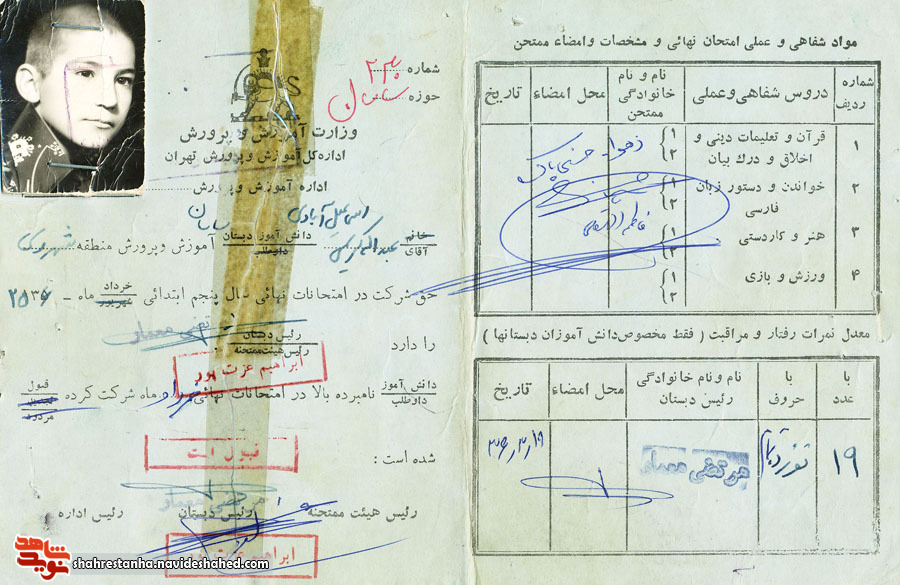 مواد شفاهی و عملی امتحان نهائی و مشخصات و امضاء ممتحن
شماره ردیف
دروس شفاهی و عملی
نام و نام خانوادگی ممتحن
محل امضاء
تاریخ
۱
قرآن و تعلیمات دینی و اخلاق و درک بیان
۱
۲
۲
خواندن و دستور زبان فارسی
۱
۲
۳
هنر و کاردستی
۱
۲
۴
ورزش و بازی
۱
۲
معدل نمرات رفتار و مراقبت ( فقط مخصوص دانش آموزان دبستانها )
با عدد
با حروف
نام و نام خانوادگی رئیس دبستان
محل امضاء
تاریخ
۱۹
مرتضی معمار
شماره
حوزه
وزارت آموزش و پرورش
اداره کل آموزش و پرورش تهران
اداره آموزش و پرورش
اسماعیل آبادی
خانم
آقای
عبدالکریم
دانش آموز دبستان
داوطلب
آموزش و پرورش منطقه شهرری
حق شرکت در امتحانات نهائی سال پنجم ابتدائی
خرداد
شهریور
ماه - ۲۵۳۶
را دارد
رئیس دبستان
رئیس هیئت ممتحنه
ابراهیم عزت پور
دانش آموز
داوطلب
نامبرده بالا در امتحانات نهائی خرداد ماه شرکت کرده
قبول
تجدید
مردود
شده است :
قبول است
رئیس هیئت ممتحنه
رئیس دبستان
رئیس اداره
ابراهیم عزت پور
نوید شاهد
shahrestanha.navideshahed.com